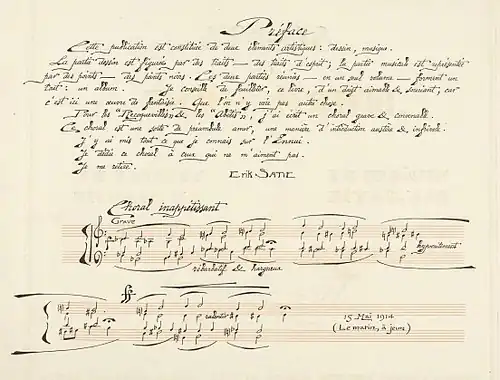 Préface
Cette publication est constituée de deux éléments artistiques : dessin, musique.
La partie dessin est figurée par des traits — des traits d'esprit ; la partie musicale est représentée
par des points — des points noirs. Ces deux parties réunies — en un seul volume — forment un
tout : un album. Je conseille de feuilleter, ce livre, d'un doigt aimable & souriant ; car
c'est ici une œuvre de fantaisie. Que l'on n'y voie pas autre chose.
Pour les "Recroquevillés" & les "Abêtis", j'ai écrit un choral grave & convenable.
Ce choral est une sorte de préambule amer, une manière d'introduction austère & infrivole.
J'y ai mis tout ce que je connais sur l'Ennui.
Je dédie ce choral à ceux qui ne m'aiment pas.
Je me retire.
ERIK SATIE
Choral inappétissant
Grave
Hypocritement
rébarbatif & hargneux
ff
ralentir
15 Mai 1914
(Le matin, à jeun)